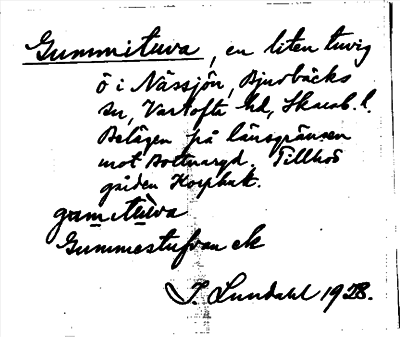 Gummituva, en liten tuvig
ö i Nässjön, Bjurbäcks
sn, Vartofta hd, Skarab. l.
Belägen på länsgränsen
mot Bottnaryd. Tillhör
gården Korphult.
gamituva
Gummestufvan ek
I. Lundahl 1928.